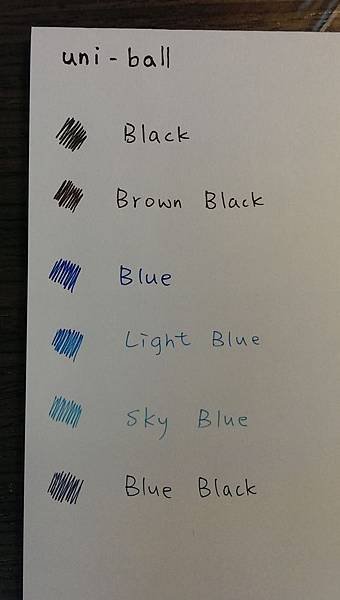 uni-ball
Black
Brown Black
Blue
Light Blue
Sky Blue
Blue Black